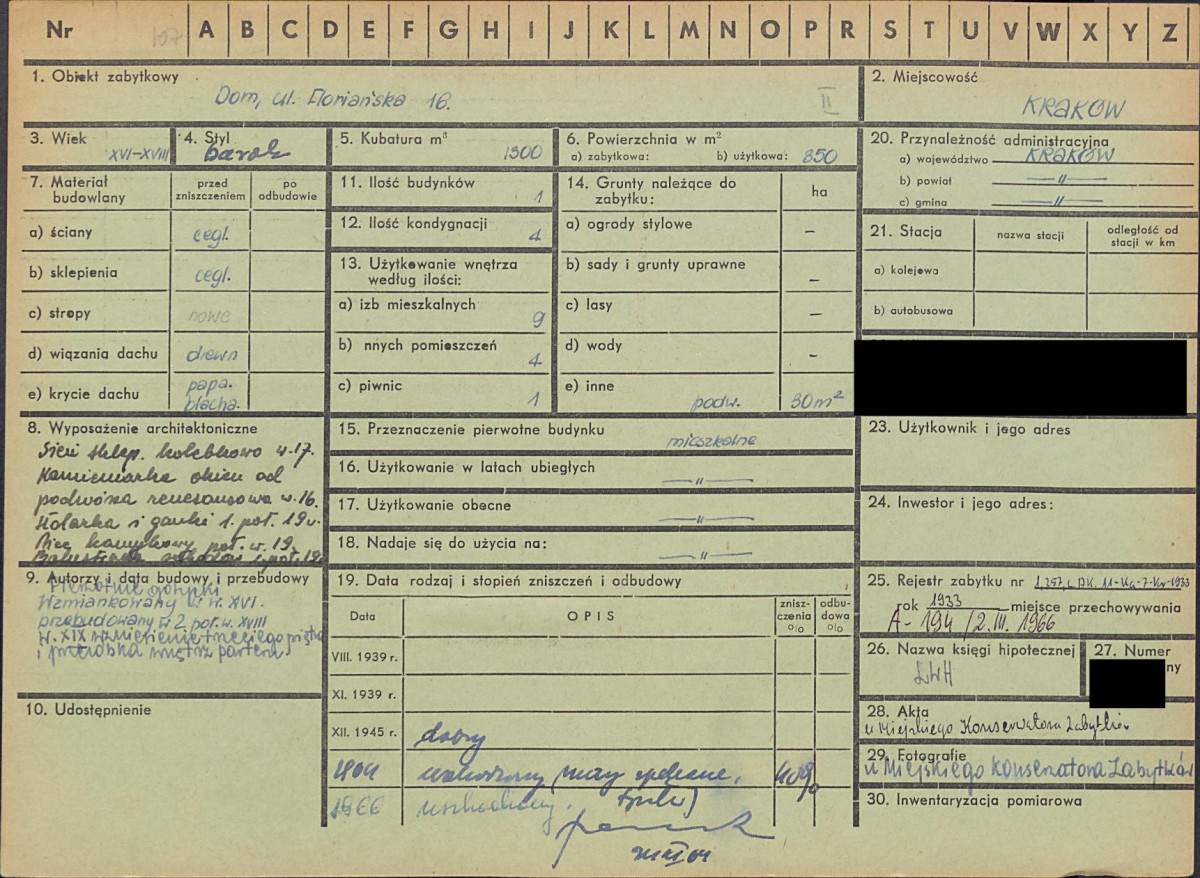 Nr 107 A B C D E F G H I J K L M N O P R S T U V W X Y Z
1. Obiekt zabytkowy
Dom, ul. Floriańska 16.
II
2. Miejscowość
KRAKÓW
3. Wiek
XVI-XVIII
4. Styl
barok
5. Kubatura m³
1300
6. Powierzchnia w m²
a) zabytkowa: b) użytkowa: 350
20. Przynależność administracyjna
a) województwo KRAKÓW
b) powiat —"—
c) gmina —"—
7. Materiał budowlany
przed zniszczeniem
po odbudowie
a) ściany cegl.
b) sklepienia cegl.
c) stropy nowe
d) wiązania dachu drewn
e) krycie dachu papa. blacha.
11. Ilość budynków 1
12. Ilość kondygnacji 4
13. Użytkowanie wnętrza według ilości:
a) izb mieszkalnych 9
b) nnych pomieszczeń 4
c) piwnic 1
14. Grunty należące do zabytku:
ha
a) ogrody stylowe –
b) sady i grunty uprawne –
c) lasy –
d) wody –
e) inne podw. 30 m²
21. Stacja
nazwa stacji
odległość od stacji w km
a) kolejowa
b) autobusowa
8. Wyposażenie architektoniczne
Sień sklep. kolebkowo w. 17.
Kamieniarka okien od
podwórza renesansowa w. 16.
Stolarka i ganki 1. poł. 19 w.
Piec kaflowy poł. w. 19.
Balustrada schodów 1 poł. 19 w.
15. Przeznaczenie pierwotne budynku
mieszkalne
16. Użytkowanie w latach ubiegłych
—"—
17. Użytkowanie obecne
—"—
18. Nadaje się do użycia na:
—"—
23. Użytkownik i jego adres
24. Inwestor i jego adres:
9. Autorzy i data budowy i przebudowy
Pierwotnie gotycki
Wzmiankowany w w. XVI.
przebudowany w 2 poł. w. XVIII
w. XIX wzniesienie trzeciego piętra
i przeróbka wnętrz parteru.
10. Udostępnienie
19. Data rodzaj i stopień zniszczeń i odbudowy
Data
OPIS
znisz-
czenia
%
odbu-
dowa
%
VIII. 1939 r.
XI. 1939 r.
XII. 1945 r. dobry
40%
1966
25. Rejestr zabytku nr
rok 1933 miejsce przechowywania
A-194 /2.III. 1966
26. Nazwa księgi hipotecznej
LWH
27. Numer
ny
28. Akta
u Miejskiego Konserwatora Zabytków
29. Fotografie
u Miejskiego Konserwatora Zabytków
30. Inwentaryzacja pomiarowa